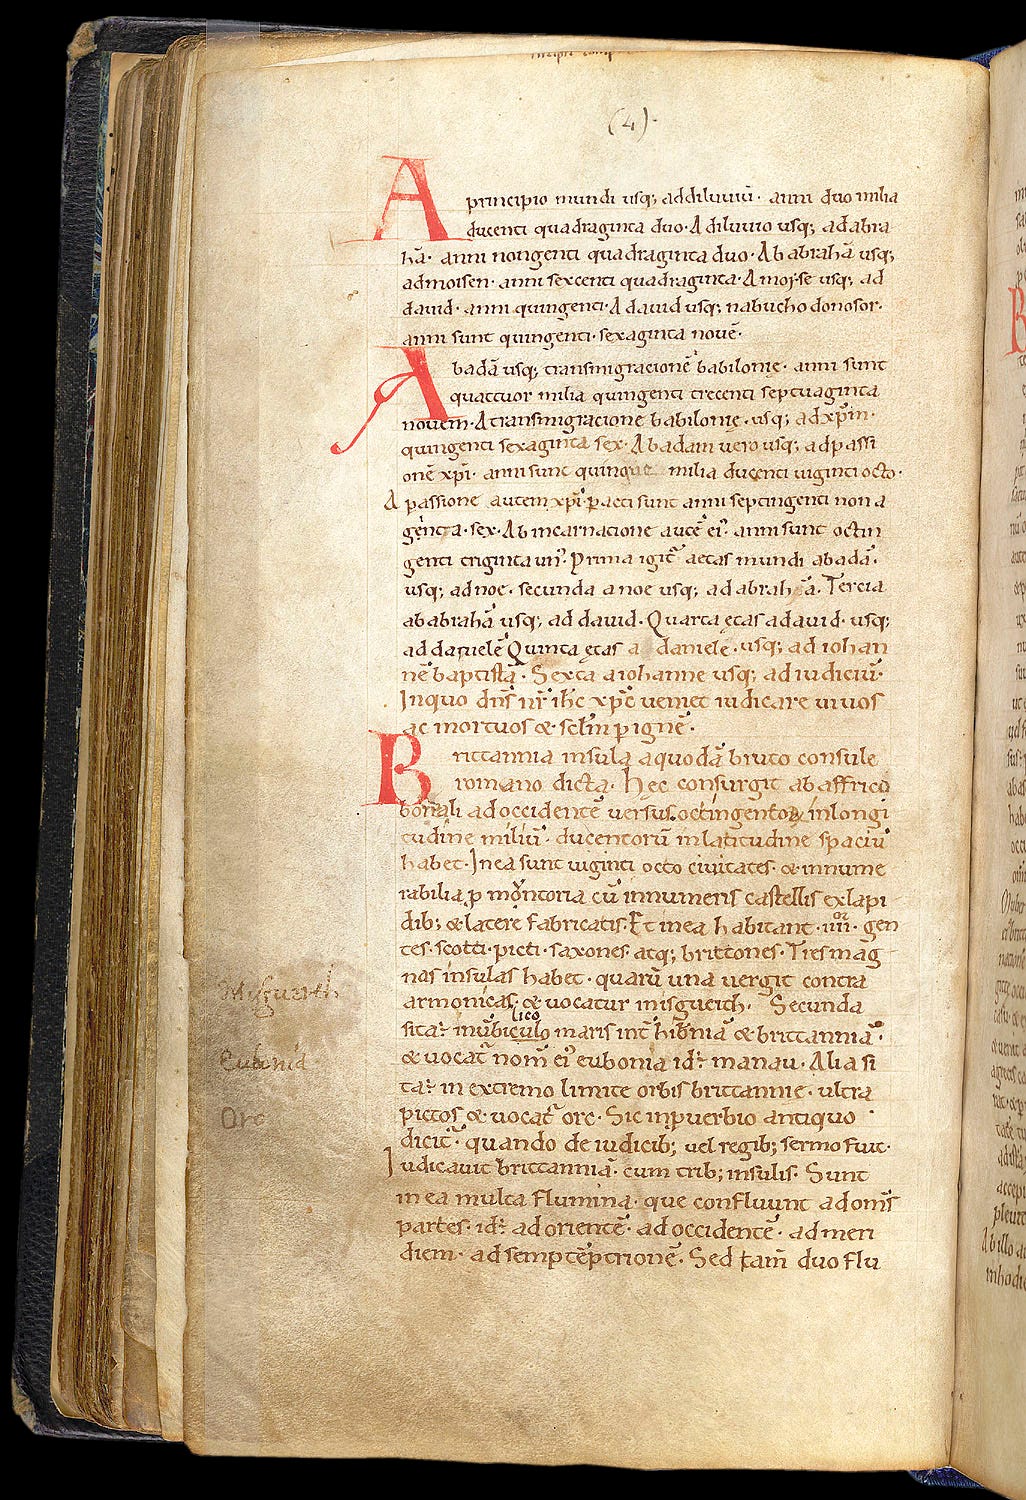 (4).
A principio mundi usq; addiluuiū. anni duo milia
ducenti quadraginta duo. A diluuio usq; adabra
hā. anni nongenti quadraginta duo. Ab abrahā usq;
admoisen. anni sexcenti quadraginta. A moyse usq; ad
dauid. anni quingenti. A dauid usq; nabuchodonosor.
anni sunt quingenti. sexaginta nouē.
Abadā usq; transmigracionē babilonię. anni sunt
quattuor milia quingenti trecenti septuaginta
nouem. A transmigracione babilonię. usq; adxp̄m.
quingenti sexaginta sex. Abadam uero usq; adpassi
onē xp̄i. anni sunt quinque milia ducenti uiginti octo.
A passione autem xp̄i. ꝑacti sunt anni septingenti nona
ginta. sex. Ab incarnacione autē ei'. anni sunt octin
genti triginta
Prima igit̄ aetas mundi abadā.
usq; adnoe. secunda a noe usq; ad abrahā. Tercia
ababrahā usq; ad dauid. Quarta ętas adauid. usq;
addanielē Quinta ętas a daniele. usq; ad iohan
nē baptistā. Sexta aiohanne usq; ad iudiciū.
Inquo dn̄s nr̄ ih̄c xp̄c ueniet iudicare uiuos
ac mortuos & sclm̄ ꝑ ignē.
Brittannia insula aquodā bruto consule
romano dicta. Hec consurgit ab affrico
boriali adoccidentē uersus. octingentoꝝ inlongi
tudine miliū. ducentorū inlatitudine spaciū
habet. Inea sunt uiginti octo ciuitates. & innume
rabilia ꝓmontoria cū innumeris castellis exlapi
dib; & latere fabricatis. Et inea habitant. iiii.or gen
tes. scotti. picti. saxones. atq; brittones. Tres mag
nas insulas habet. quarū una uergit contra
armonicas. & uocatur misgueith. Secunda
sita÷ inūbiculo lico maris int̄ hib̄niā & brittanniā.
& uocat̄ nom̄ ei' eubonia id÷ manau. Alia si
ta÷ in extremo limite orbis brittannie. ultra
pictos & uocat̄ orc. Sic inꝓuerbio antiquo
dicit̄. quando de iudicib; uel regib; sermo fuit.
Iudicauit brittanniā. cum trib; insulis. Sunt
in ea multa flumina. que confluunt adom̄s
partes. id÷ adorientē. adoccidentē. admeri
diem. adseptē̄ptrionē. Sed tam̄ duo flu
Misgueith
Eubonia
Orc